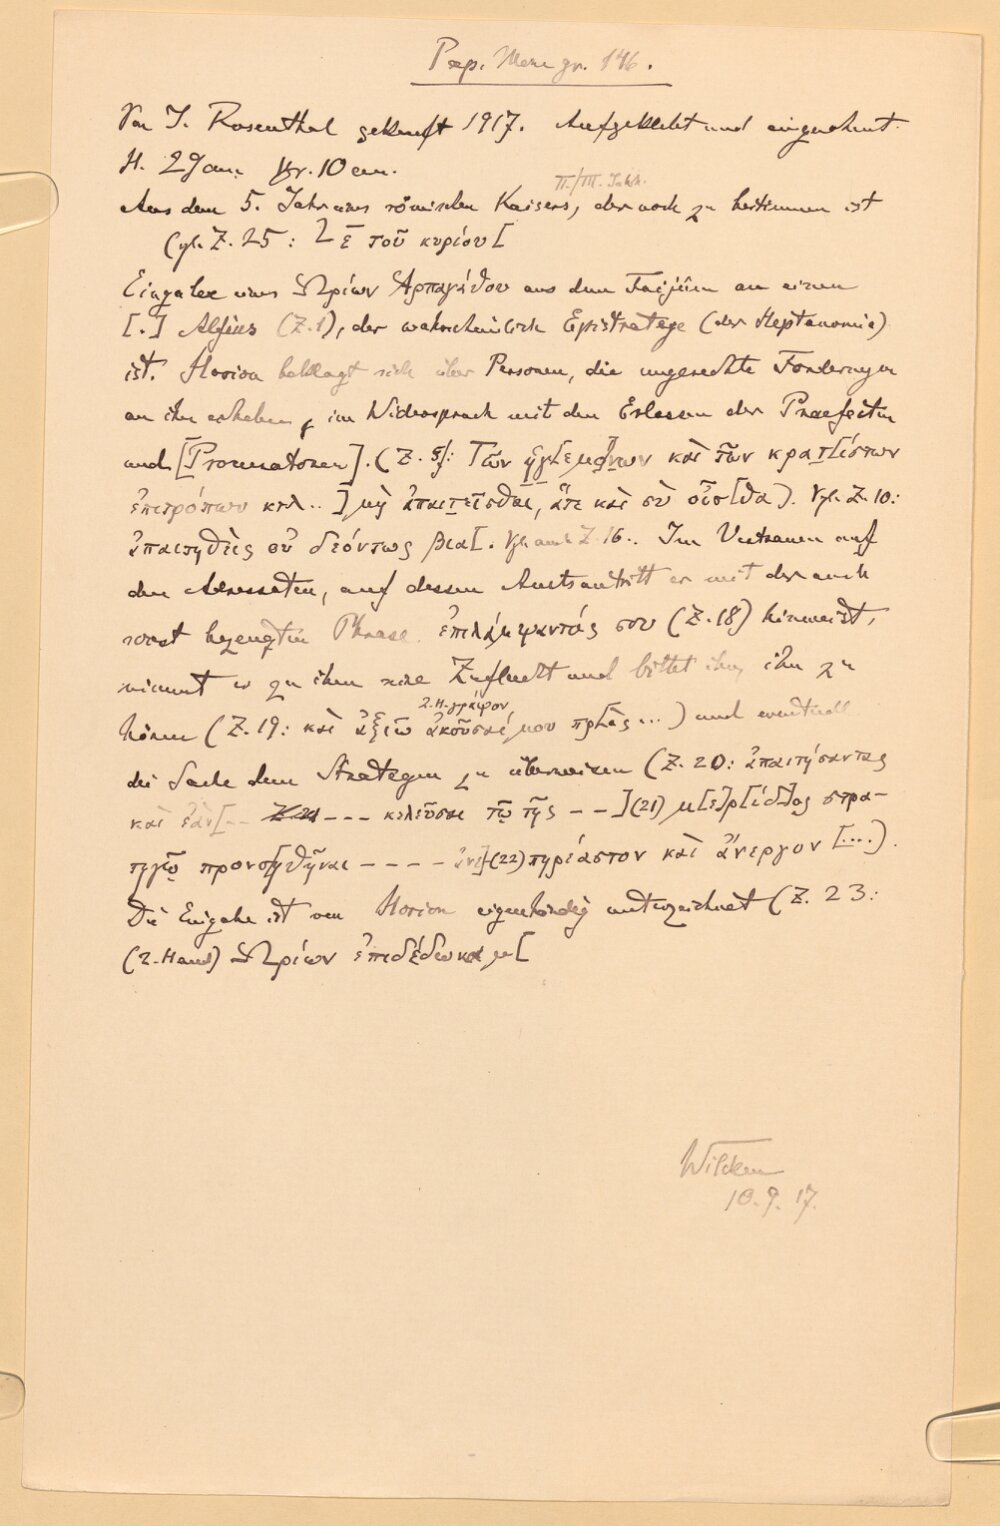 Pap. Mon. gr. 146.
Von J. Rosenthal gekauft 1917. Aufgeklebt und eingerahmt.
H. 29 cm. Br. 10 cm.
II./III. Jahrh.
Aus dem 5. Jahr eines römischen Kaisers, der noch zu bestimmen ist
(vgl. Z. 25: L ε̄ τοῦ κυρίου [
Eingabe eines Ὡρίων Ἁρπαγάθου aus dem Faijûm an einen
[.] Alfius (Z. 1), der wahrscheinlich Epistratege (der Heptanomia)
ist. Horion beklagt sich über Personen, die ungerechte Forderungen
an ihn erheben, im Widerspruch mit den Erlassen der Praefecten
und [Procuratoren]. (Z. 5f: Τῶν ἡγ[εμόνων καὶ τῶν κρατ[ίστων
ἐπιτρόπων κτλ.. ] μὴ ἀπαιτεῖσθαι, ἅτε καὶ σὺ οἶσ[θα). Vgl. Z. 10:
ἀπαιτηθεὶς οὐ δεόντως βια[. Vgl. auch Z. 16.. Im Vertrauen auf
den Adressaten, auf dessen Amtsantritt er mit der auch
sonst bezeugten Phrase ἐπιλάμψαντός σου (Z. 18) hinweist,
nimmt er zu ihm seine Zuflucht und bittet ihn, ihn zu
hören (Z. 19: καὶ ἀξιῶ ἀκοῦσαί μου πρ[ὸς ...) und eventuell
die Sache dem Strategen zu überweisen (Z. 20: ἀπαιτήσαντας
καὶ ἐὰν [-- --- κελεῦσαι τῷ τῆς -- ] (21) μ[ε]ρ[ίδ]ος στρα-
τηγῷ προνο[ηθῆναι ---- ἀνε]-(22) πηρέαστον καὶ ἄνεργον [....).
Die Eingabe ist von Horion eigenhändig unterzeichnet (Z. 23:
(2. Hand) Ὡρίων ἐπιδέδωκα μ[
Wilcken
10. 9. 17.